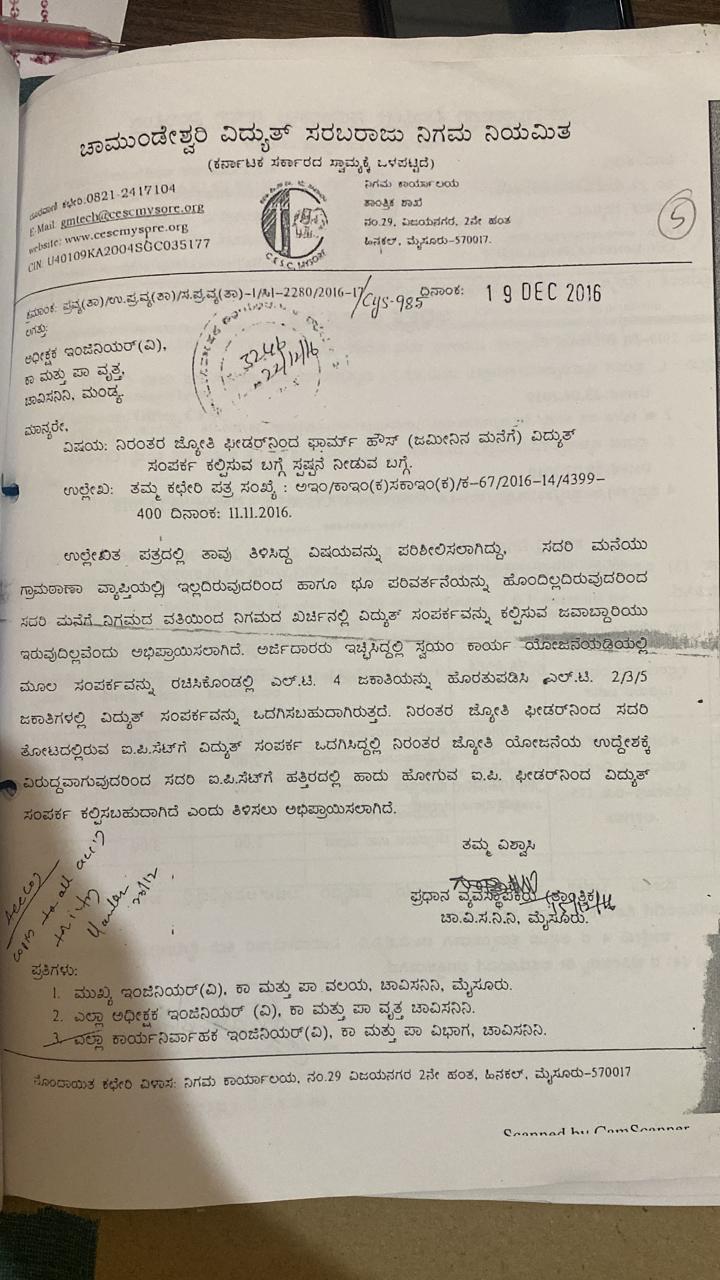 ಚಾಮುಂಡೇಶ್ವರಿ ವಿದ್ಯುತ್ ಸರಬರಾಜು ನಿಗಮ ನಿಯಮಿತ
(ಕರ್ನಾಟಕ ಸರ್ಕಾರದ ಸ್ವಾಮ್ಯಕ್ಕೆ ಒಳಪಟ್ಟಿದೆ)
ದೂರವಾಣಿ ಕಛೇರಿ:0821-2417104
E-Mail: gmtech@cescmysore.org
website: www.cescmysore.org
CIN: U40109KA2004SGC035177
C.E.S.C, MYSORE
ನಿಗಮ ಕಾರ್ಯಾಲಯ
ತಾಂತ್ರಿಕ ಶಾಖೆ
ನಂ.29, ವಿಜಯನಗರ, 2ನೇ ಹಂತ
ಹಿನಕಲ್, ಮೈಸೂರು-570017.
5
ಕ್ರಮಾಂಕ: ಪ್ರವ್ಯ(ತಾ)/ಉ.ಪ್ರವ್ಯ(ತಾ)/ಸ.ಪ್ರವ್ಯ(ತಾ)-1/ಸಿ1-2280/2016-17/Cys-985 ದಿನಾಂಕ: 19 DEC 2016
ಇಗೆ:
ಅಧೀಕ್ಷಕ ಇಂಜಿನಿಯರ್(ವಿ),
ಕಾ ಮತ್ತು ಪಾ ವೃತ್ತ,
ಚಾವಿಸನಿನಿ, ಮಂಡ್ಯ.
ಮಾನ್ಯರೇ,
ವಿಷಯ: ನಿರಂತರ ಜ್ಯೋತಿ ಫೀಡರ್‌ನಿಂದ ಫಾರ್ಮ್ ಹೌಸ್ (ಜಮೀನಿನ ಮನೆಗೆ) ವಿದ್ಯುತ್
ಸಂಪರ್ಕ ಕಲ್ಪಿಸುವ ಬಗ್ಗೆ ಸ್ಪಷ್ಟನೆ ನೀಡುವ ಬಗ್ಗೆ.
ಉಲ್ಲೇಖ: ತಮ್ಮ ಕಛೇರಿ ಪತ್ರ ಸಂಖ್ಯೆ : ಅಇಂ/ಕಾಇಂ(ಕ)ಸಕಾಇಂ(ಕ)/ಕ-67/2016-14/4399-
400 ದಿನಾಂಕ: 11.11.2016.
ಉಲ್ಲೇಖಿತ ಪತ್ರದಲ್ಲಿ ತಾವು ತಿಳಿಸಿದ್ದ ವಿಷಯವನ್ನು ಪರಿಶೀಲಿಸಲಾಗಿದ್ದು, ಸದರಿ ಮನೆಯು
ಗ್ರಾಮಠಾಣಾ ವ್ಯಾಪ್ತಿಯಲ್ಲಿ ಇಲ್ಲದಿರುವುದರಿಂದ ಹಾಗೂ ಭೂ ಪರಿವರ್ತನೆಯನ್ನು ಹೊಂದಿಲ್ಲದಿರುವುದರಿಂದ
ಸದರಿ ಮನೆಗೆ ನಿಗಮದ ವತಿಯಿಂದ ನಿಗಮದ ಖರ್ಚಿನಲ್ಲಿ ವಿದ್ಯುತ್ ಸಂಪರ್ಕವನ್ನು ಕಲ್ಪಿಸುವ ಜವಾಬ್ದಾರಿಯು
ಇರುವುದಿಲ್ಲವೆಂದು ಅಭಿಪ್ರಾಯಿಸಲಾಗಿದೆ. ಅರ್ಜಿದಾರರು ಇಚ್ಛಿಸಿದ್ದಲ್ಲಿ ಸ್ವಯಂ ಕಾರ್ಯ ಯೋಜನೆಯಡಿಯಲ್ಲಿ
ಮೂಲ ಸಂಪರ್ಕವನ್ನು ರಚಿಸಿಕೊಂಡಲ್ಲಿ ಎಲ್.ಟಿ. 4 ಜಕಾತಿಯನ್ನು ಹೊರತುಪಡಿಸಿ ಎಲ್.ಟಿ. 2/3/5
ಜಕಾತಿಗಳಲ್ಲಿ ವಿದ್ಯುತ್ ಸಂಪರ್ಕವನ್ನು ಒದಗಿಸಬಹುದಾಗಿರುತ್ತದೆ. ನಿರಂತರ ಜ್ಯೋತಿ ಫೀಡರ್‌ನಿಂದ ಸದರಿ
ತೋಟದಲ್ಲಿರುವ ಐ.ಪಿ.ಸೆಟ್‌ಗೆ ವಿದ್ಯುತ್ ಸಂಪರ್ಕ ಒದಗಿಸಿದ್ದಲ್ಲಿ ನಿರಂತರ ಜ್ಯೋತಿ ಯೋಜನೆಯ ಉದ್ದೇಶಕ್ಕೆ
ವಿರುದ್ಧವಾಗುವುದರಿಂದ ಸದರಿ ಐ.ಪಿ.ಸೆಟ್‌ಗೆ ಹತ್ತಿರದಲ್ಲಿ ಹಾದು ಹೋಗುವ ಐ.ಪಿ. ಫೀಡರ್‌ನಿಂದ ವಿದ್ಯುತ್
ಸಂಪರ್ಕ ಕಲ್ಪಿಸಬಹುದಾಗಿದೆ ಎಂದು ತಿಳಿಸಲು ಅಭಿಪ್ರಾಯಿಸಲಾಗಿದೆ.
ತಮ್ಮ ವಿಶ್ವಾಸಿ
ಪ್ರಧಾನ ವ್ಯವಸ್ಥಾಪಕರು (ತಾಂತ್ರಿಕ)
ಚಾ.ವಿ.ಸ.ನಿ.ನಿ, ಮೈಸೂರು.
copy to all
ಪ್ರತಿಗಳು:
1. ಮುಖ್ಯ ಇಂಜಿನಿಯರ್(ವಿ), ಕಾ ಮತ್ತು ಪಾ ವಲಯ, ಚಾವಿಸನಿನಿ, ಮೈಸೂರು.
2. ಎಲ್ಲಾ ಅಧೀಕ್ಷಕ ಇಂಜಿನಿಯರ್ (ವಿ), ಕಾ ಮತ್ತು ಪಾ ವೃತ್ತ ಚಾವಿಸನಿನಿ.
3. ಎಲ್ಲಾ ಕಾರ್ಯನಿರ್ವಾಹಕ ಇಂಜಿನಿಯರ್(ವಿ), ಕಾ ಮತ್ತು ಪಾ ವಿಭಾಗ, ಚಾವಿಸನಿನಿ.
ನೊಂದಾಯಿತ ಕಛೇರಿ ವಿಳಾಸ: ನಿಗಮ ಕಾರ್ಯಾಲಯ, ನಂ.29 ವಿಜಯನಗರ 2ನೇ ಹಂತ, ಹಿನಕಲ್, ಮೈಸೂರು-570017
Scanned by CamScanner